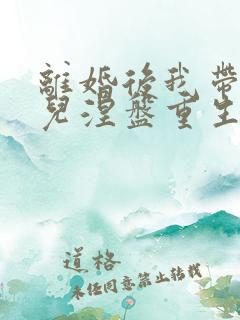 離婚後我帶
兒涅盤重生
道格
未經同意禁止轉載